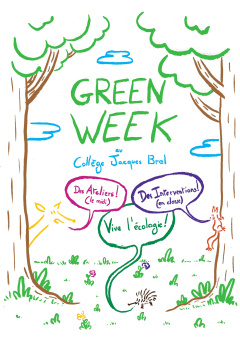 GREEN
WEEK
au
Collège Jacques Bral
Des Ateliers!
(le midi)
Des Interventions!
(en classe)
Vive l'écologie!